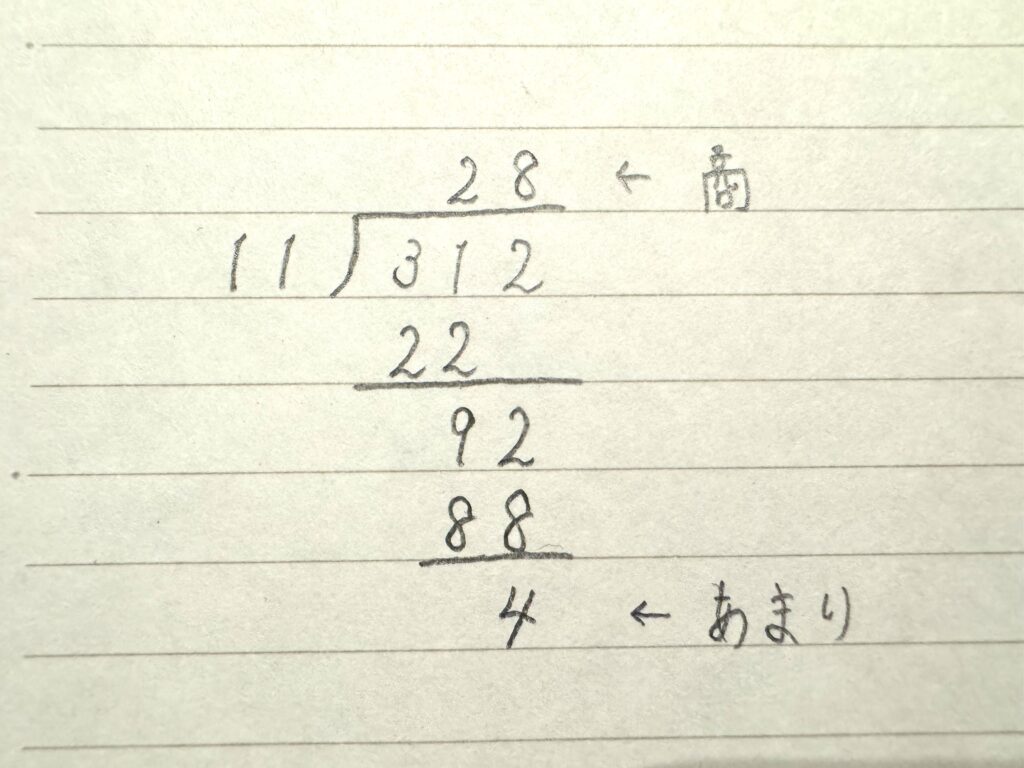 28 ← 商
11)312
22
92
88
4 ← あまり